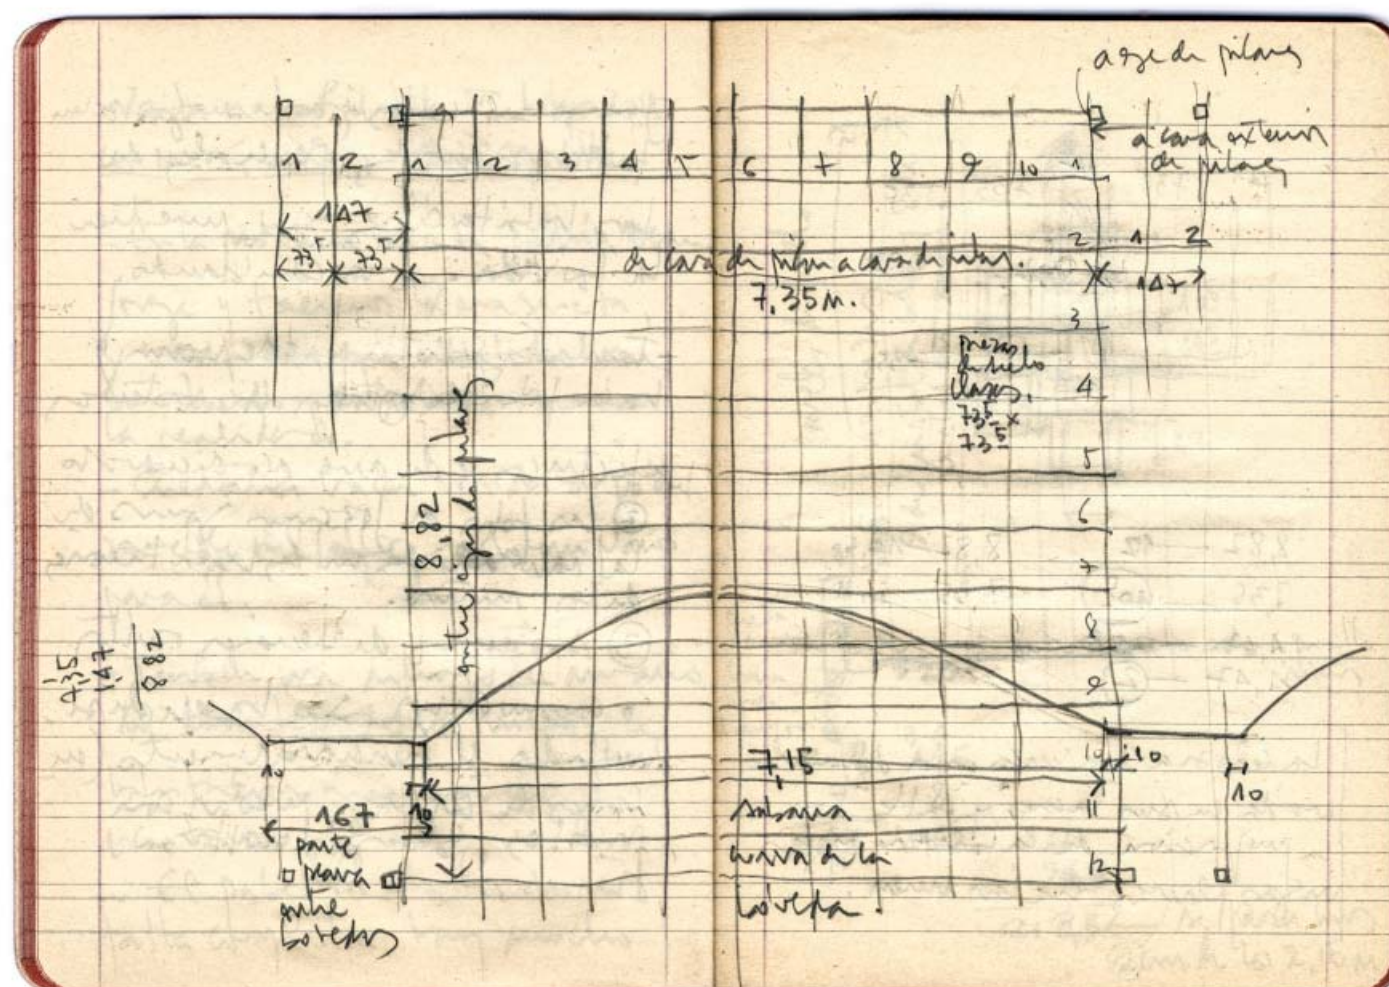 a eje de pilares
a cara exterior
de pilares
1 2 1 2 3 4 5 6 7 8 9 10 1
147
73⁵ 73⁵
2 1 2
de cara de pilar a cara de pilar.
7,35 m.
147
3
piezas
de suelo
73⁵ x
73⁵
4
5
6
7
8
9
10
11
12
8,82
entre ejes de pilares
7,35
1,47
8 82
10
10
167
parte
plana
entre
bovedas
7,15
curva de la
bóveda.
10
10